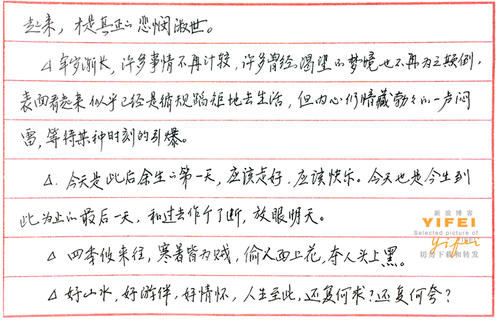 起来，才是真正的悲悯淑世。
△年岁渐长，许多事情不再计较，许多曾经渴望的梦境也不再为之颠倒，
表面看起来似乎已经是循规蹈矩地去生活，但内心仍隐藏勃勃的一声闷
雷，等待某种时刻的引爆。
△.今天是此后余生的第一天，应该走好，应该快乐。今天也是今生到
此为止的最后一天，和过去作个了断，放眼明天。
新浪博客
YIFEI
Selected picture of
yifei
切勿下载和转发
△ 四季倏来往，寒暑皆为贼，偷人面上花，夺人头上黑。
△好山水，好游伴，好情怀，人生至此，还复何求？还复何夸？